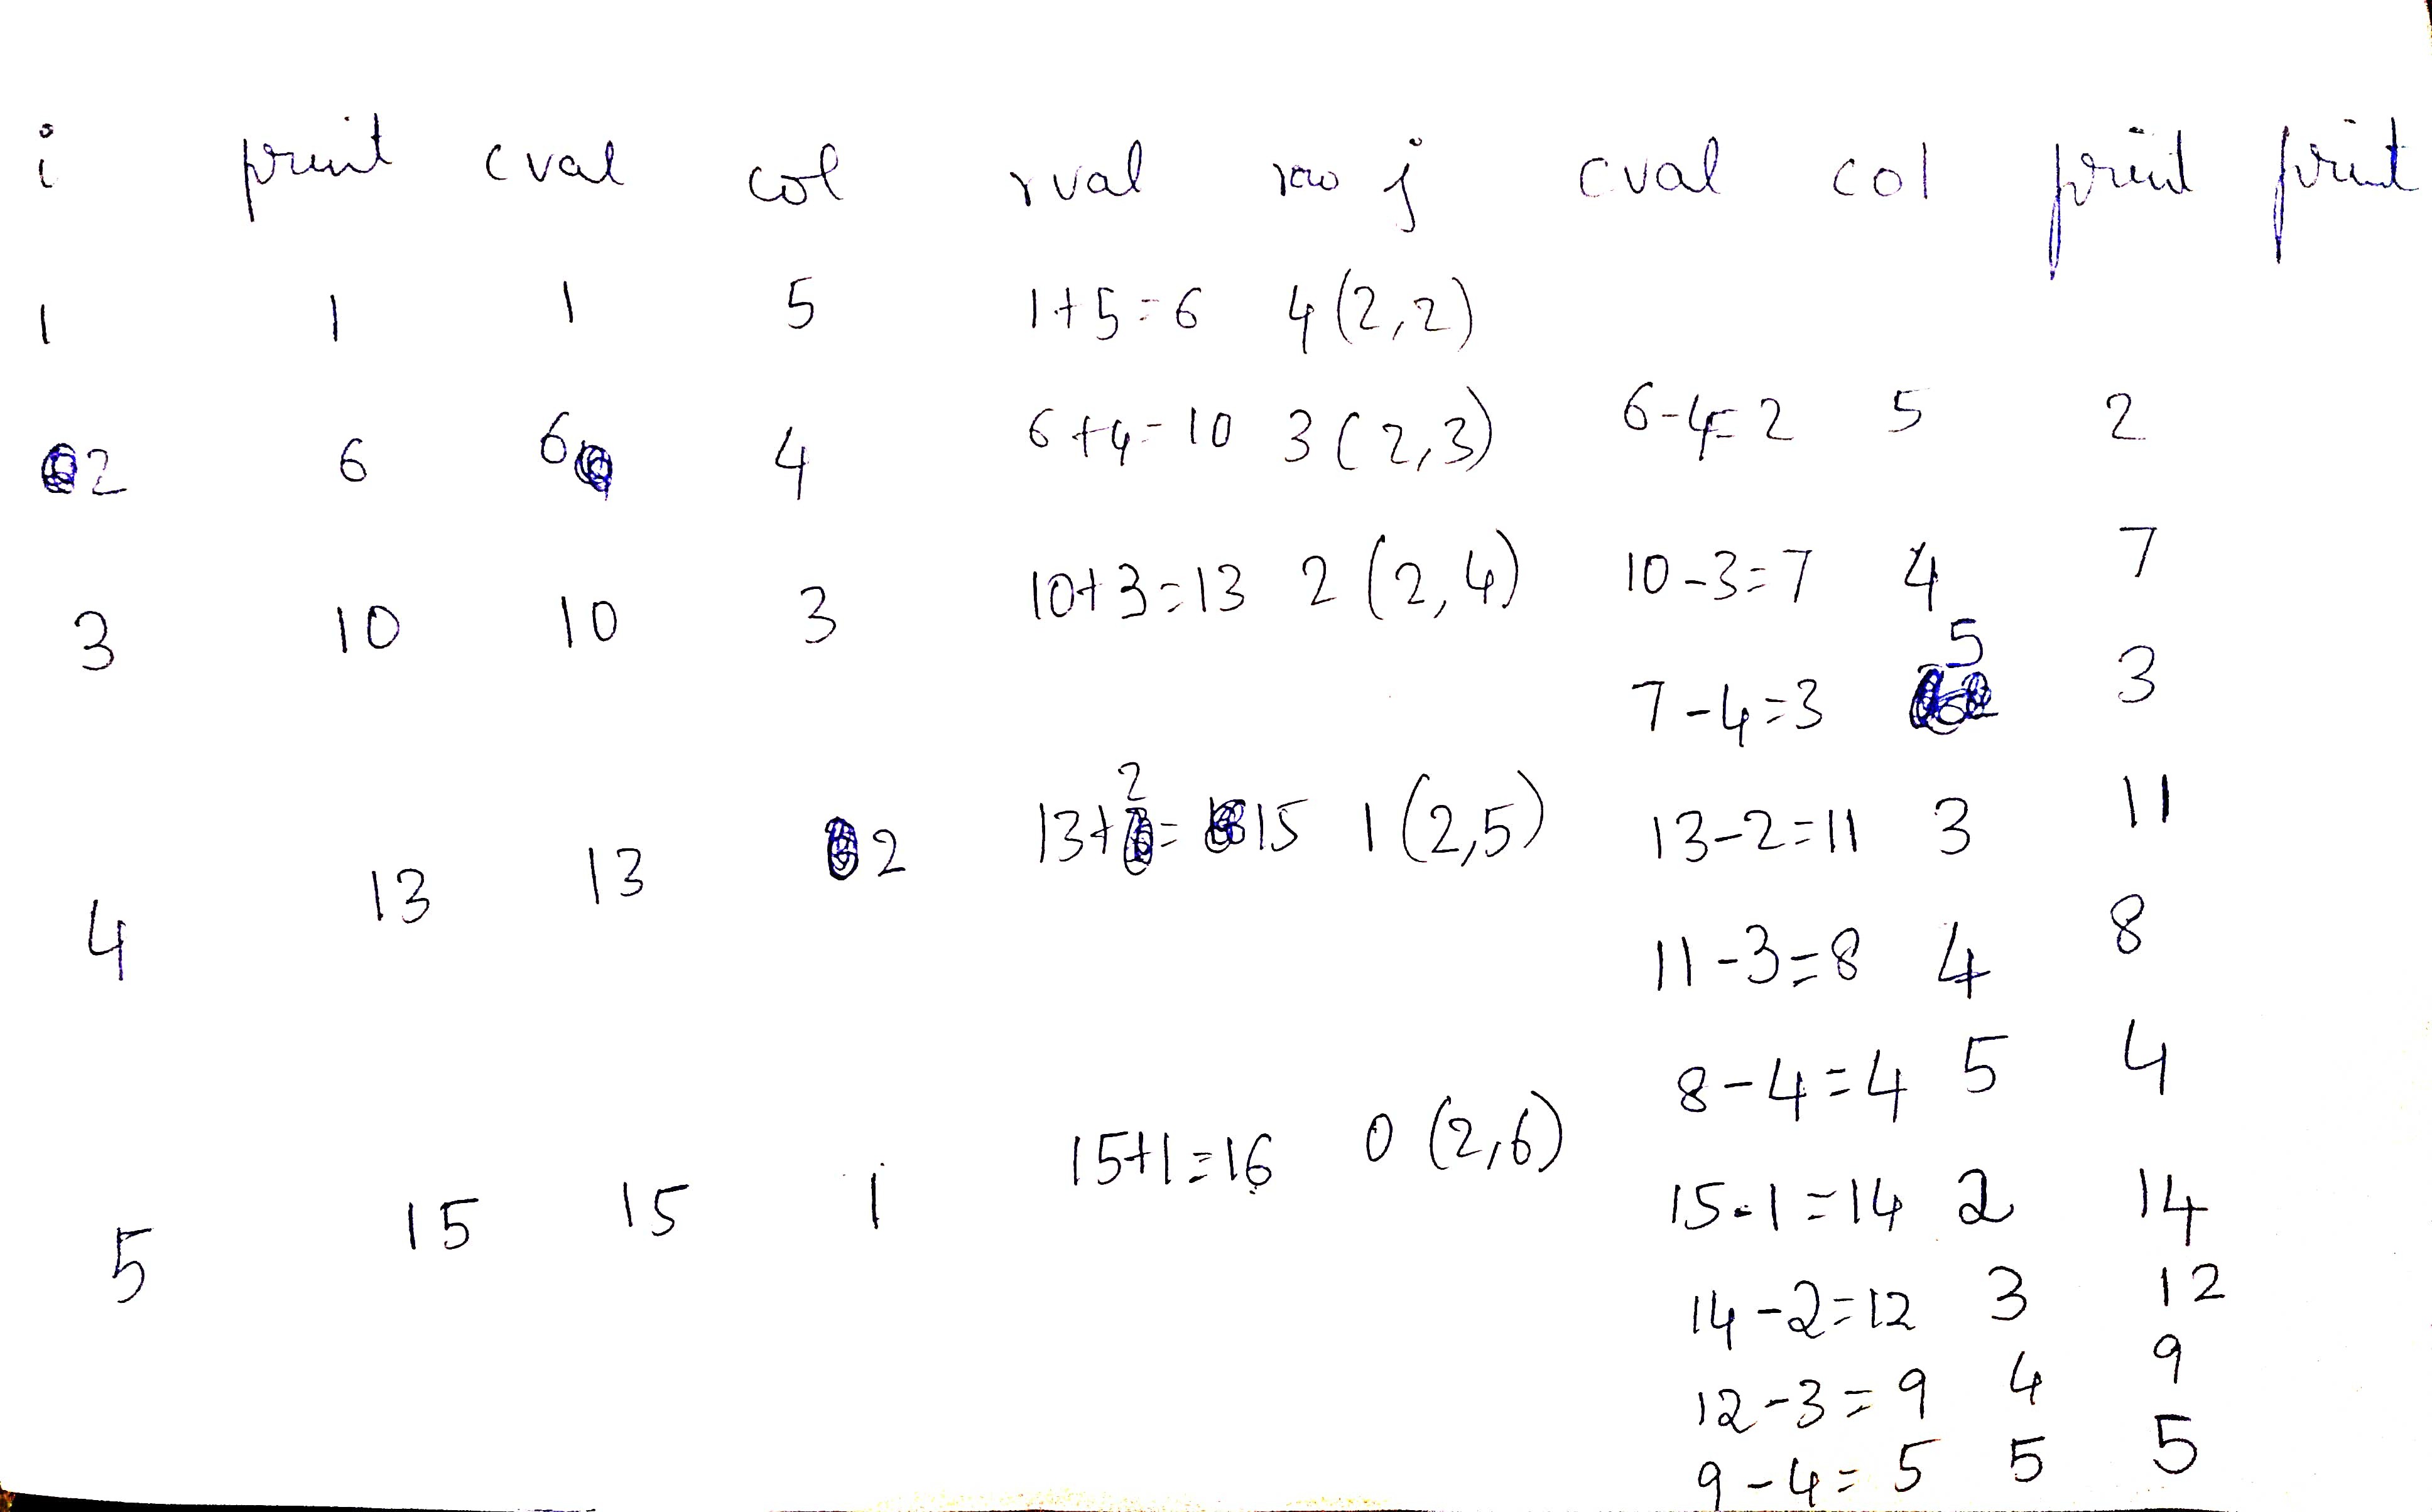 i print cval col rval row j cval col print print
1 1 1 5 1+5=6 4(2,2)
2 6 6 4 6+4=10 3(2,3) 6-4=2 5 2
3 10 10 3 10+3=13 2(2,4) 10-3=7 4 7
7-4=3 5 3
4 13 13 2 13+2=15 1(2,5) 13-2=11 3 11
11-3=8 4 8
8-4=4 5 4
5 15 15 1 15+1=16 0(2,6) 15-1=14 2 14
14-2=12 3 12
12-3=9 4 9
9-4=5 5 5